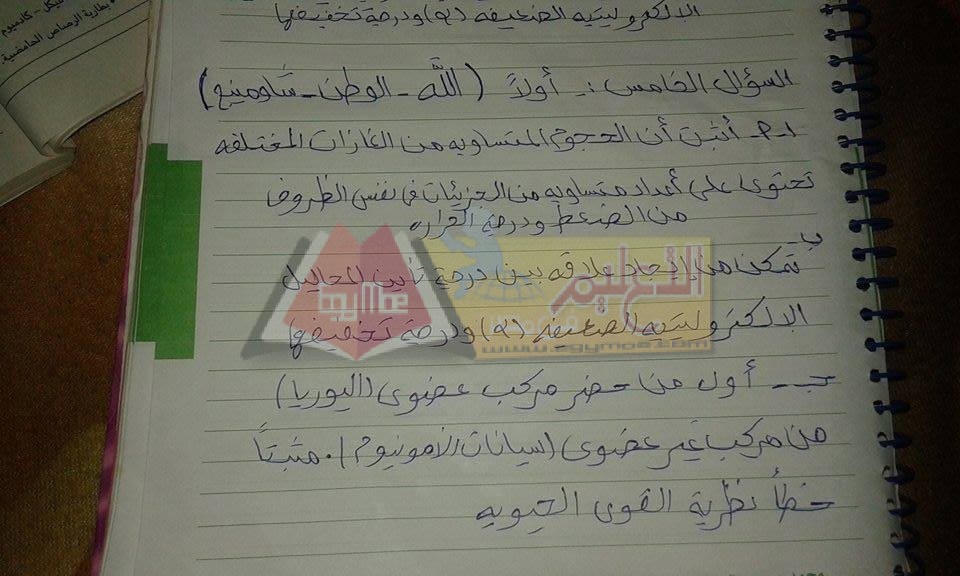 نيكل - كادميوم
بطارية الرصاص الحامضية
الالكتروليتيه الضعيفه (α) ودرجة تخفيفها
السؤال الخامس :- أولاً (الله - الوطن - ساومنيع)
P- أثبت أن الحجوم المتساويه من الغازات المختلفه
تحتوى على أعداد متساويه من الجزيئات فى نفس الظروف
من الضغط ودرجة الحراره
ب- تمكن من إيجاد علاقه بين درجة تأين المحاليل
الالكتروليتيه الضعيفه (α) ودرجة تخفيفها
التعليم
egymoe
www.egymoe.com
جـ - أول من حضر مركب عضوى (اليوريا)
من مركب غير عضوى (سيانات الأمونيوم). مثبتاً
خطأ نظرية القوى الحيويه